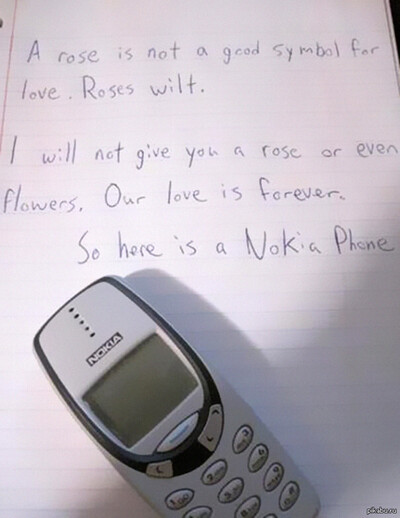 A rose is not a good symbol for
love. Roses wilt.
I will not give you a rose or even
flowers. Our love is forever.
So here is a Nokia Phone
NOKIA
C
1
2
3
6
pikabu.ru